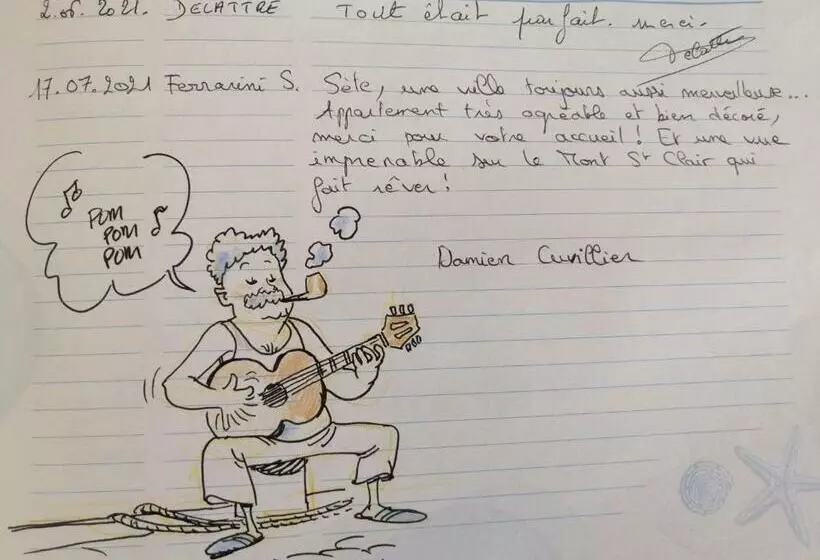 2.06.2021. DELATTRE Tout était parfait. merci.
Delattre
17.07.2021 Ferrarini S. Sète, une ville toujours aussi merveilleuse...
Appartement très agréable et bien décoré,
merci pour votre accueil ! Et une vue
imprenable sur le Mont St Clair qui
fait rêver !
POM
POM
POM
Damien Cuvillier